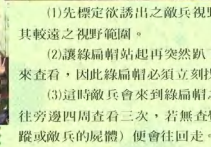 (1)先標定欲誘出之敵兵視野
其較遠之視野範圍。
(2)讓綠扁帽站起再突然趴
來查看，因此綠扁帽必須立刻找
(3)這時敵兵會來到綠扁帽
往旁邊四周查看三次，若無查
蹤或敵兵的屍體）便會往回走。